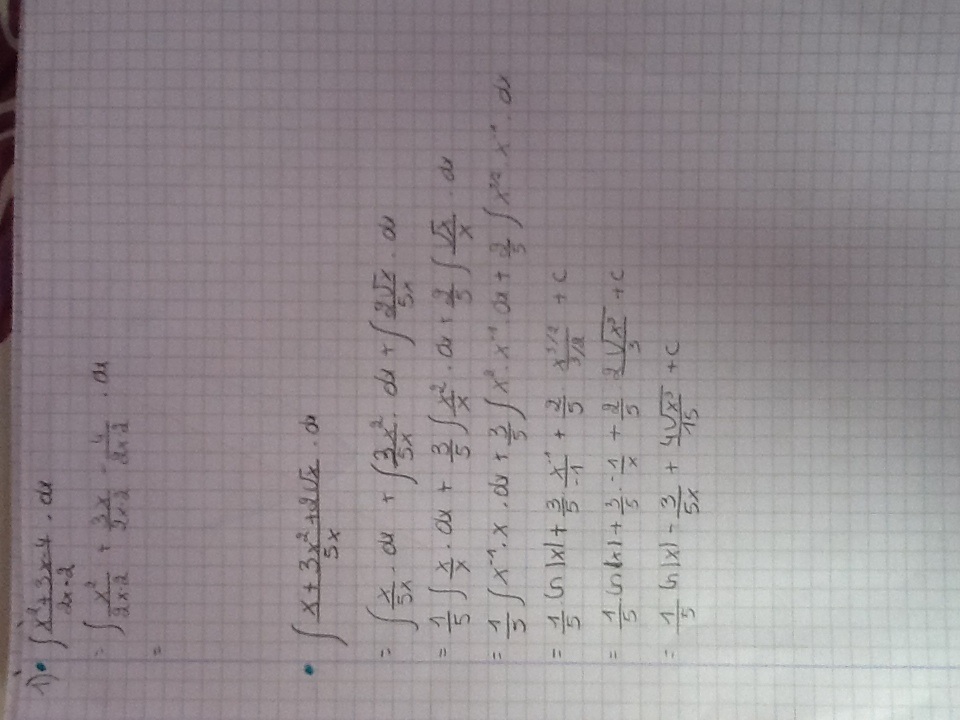 1) • ∫ (x² + 3x - 4)/(2x - 2) . dx
= ∫ x²/(2x-2) + 3x/(2x-2) - 4/(2x-2) . dx
=
• ∫ (x + 3x² + 2√x)/(5x) . dx
= ∫ x/(5x) . dx + ∫ 3x²/(5x) . dx + ∫ 2√x/(5x) . dx
= 1/5 ∫ x/x . dx + 3/5 ∫ x²/x . dx + 2/5 ∫ √x/x . dx
= 1/5 ∫ x⁻¹ . x . dx + 3/5 ∫ x² . x⁻¹ . dx + 2/5 ∫ x^(1/2) . x⁻¹ . dx
= 1/5 ln|x| + 3/5 . x⁻¹/-1 + 2/5 . x^(3/2)/(3/2) + c
= 1/5 ln|x| + 3/5 . -1/x + 2/5 . 2√x³/3 + c
= 1/5 ln|x| - 3/(5x) + 4√x³/15 + c